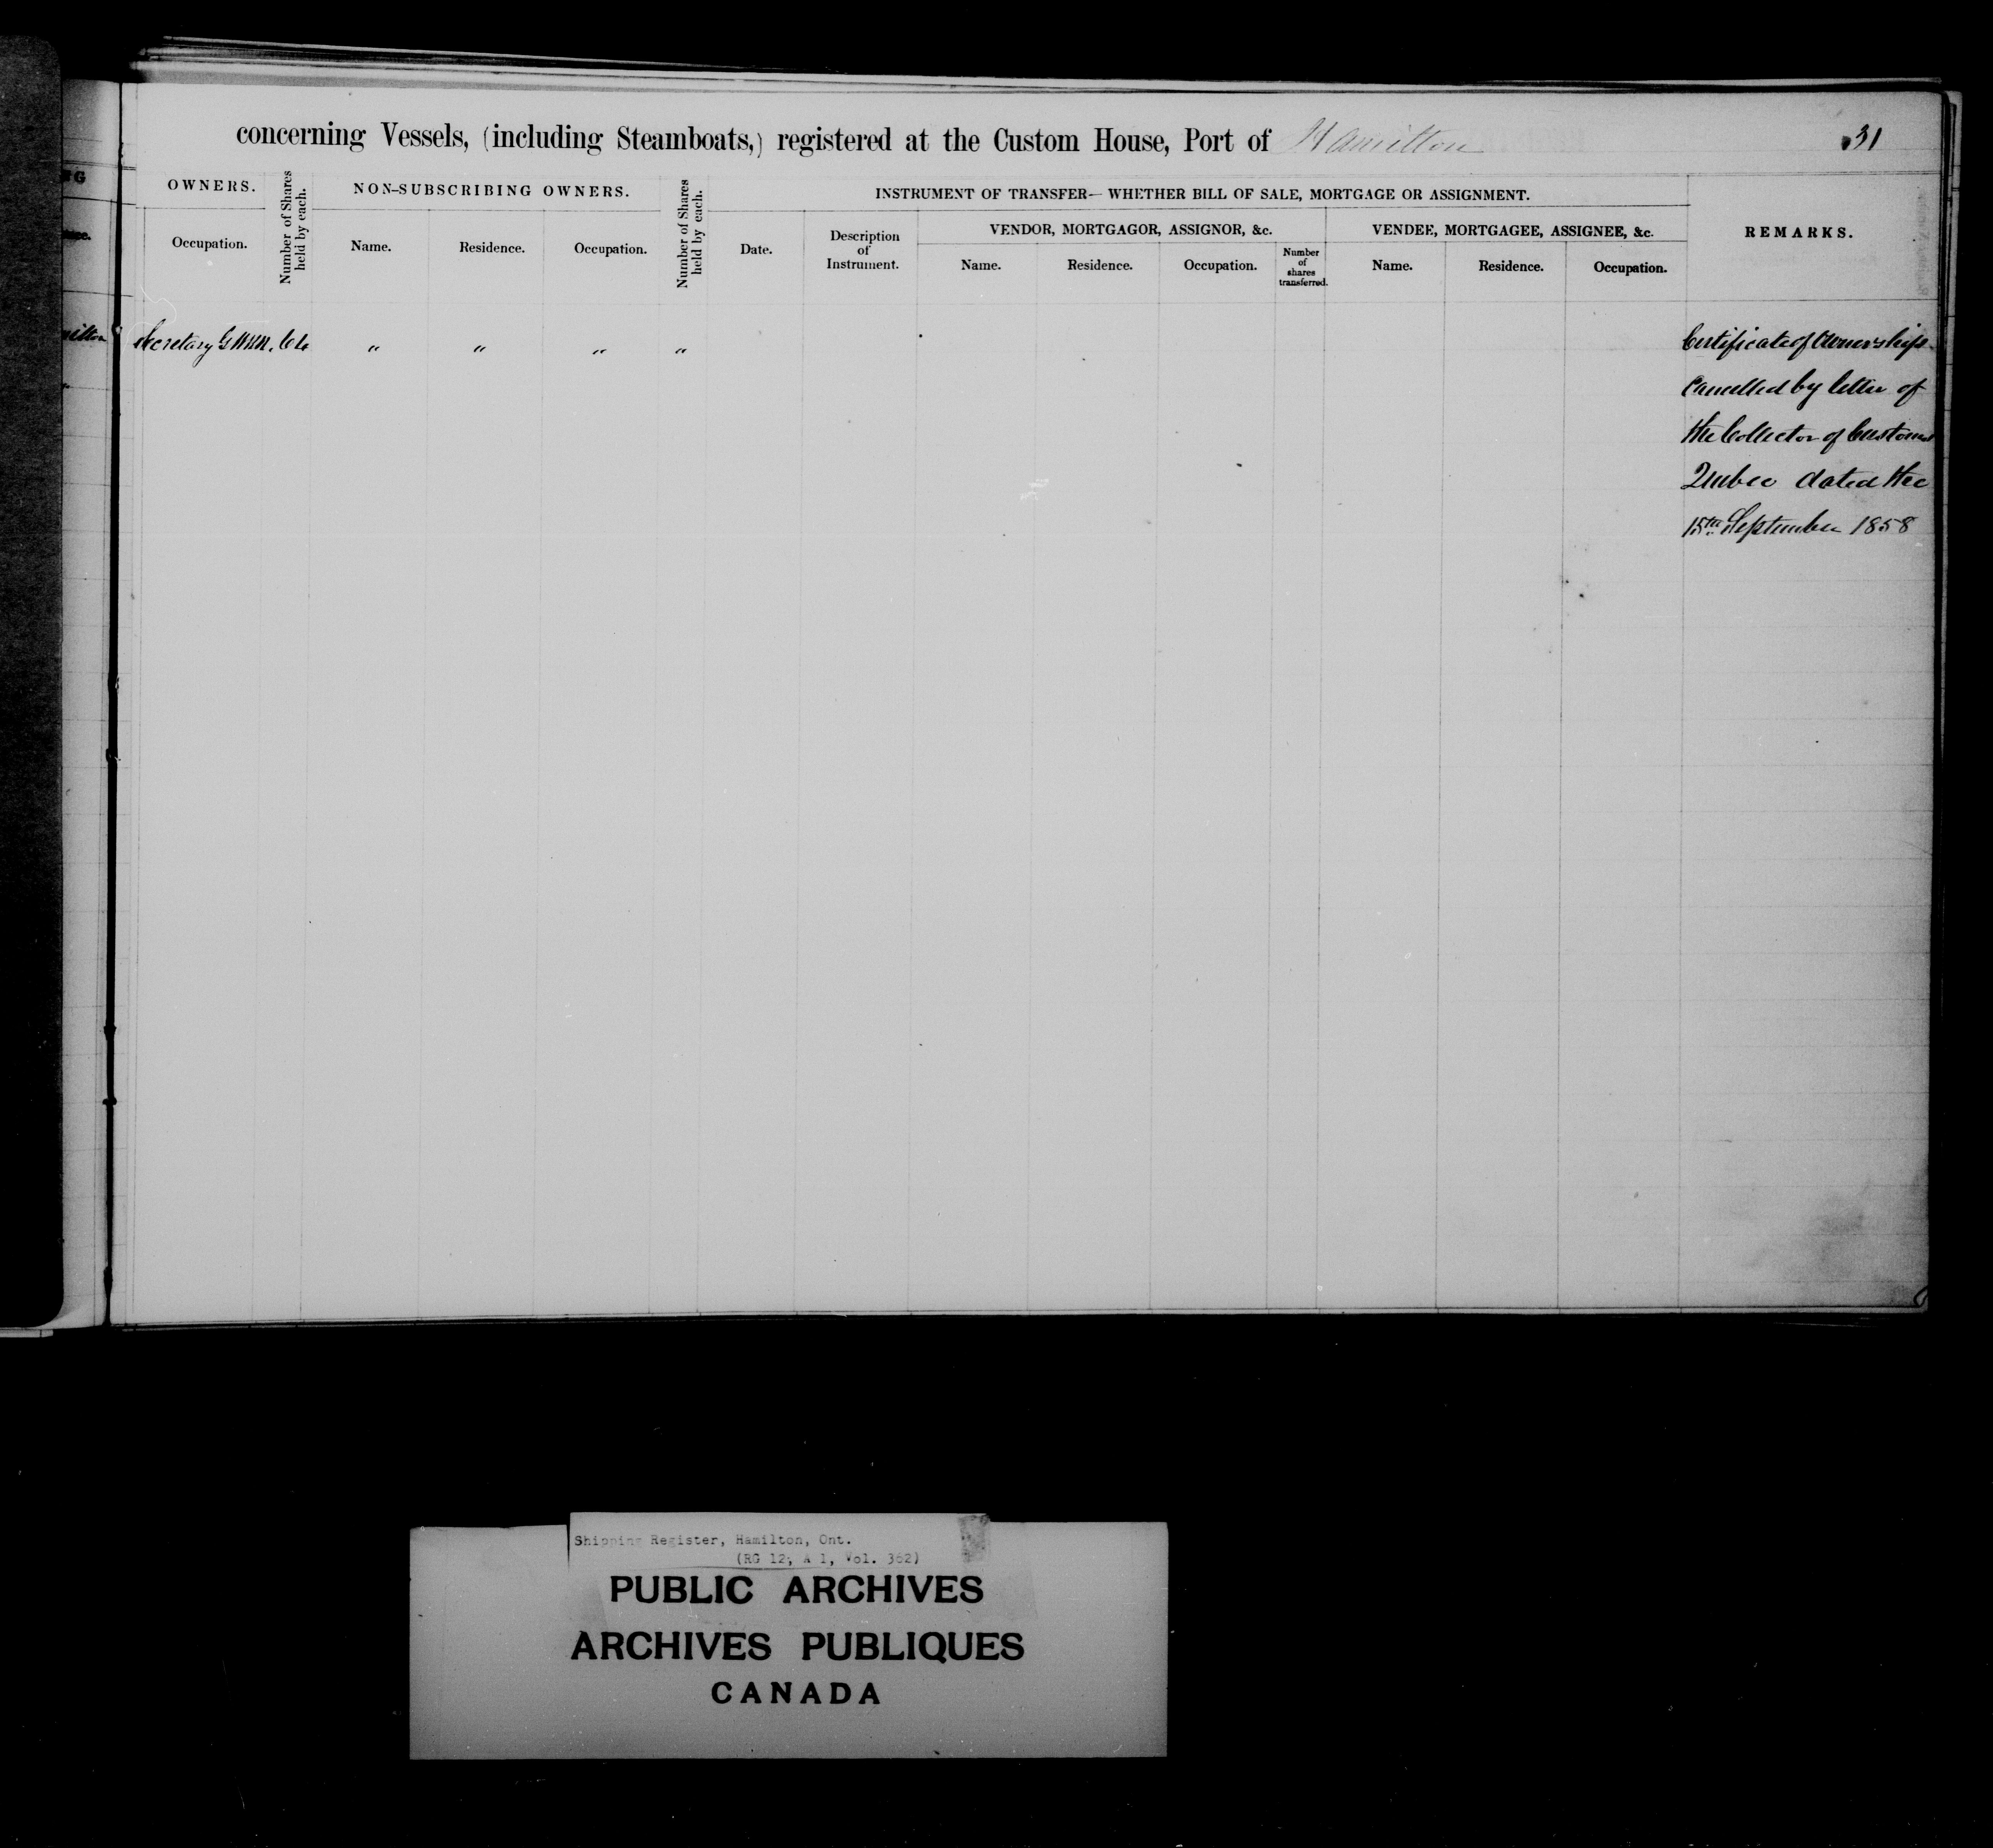 concerning Vessels, (including Steamboats,) registered at the Custom House, Port of Hamilton
31
OWNERS.
Number of Shares held by each.
NON-SUBSCRIBING OWNERS.
Number of Shares held by each.
INSTRUMENT OF TRANSFER— WHETHER BILL OF SALE, MORTGAGE OR ASSIGNMENT.
REMARKS.
Occupation.
Name.
Residence.
Occupation.
Date.
Description of Instrument.
VENDOR, MORTGAGOR, ASSIGNOR, &c.
VENDEE, MORTGAGEE, ASSIGNEE, &c.
Name.
Residence.
Occupation.
Number of shares transferred.
Name.
Residence.
Occupation.
Secretary 64 " " " "
Certificate of Ownership
Cancelled by letter of
the Collector of Customs
Quebec dated the
15th September 1858
Shipping Register, Hamilton, Ont.
(RG 12, A 1, Vol. 362)
PUBLIC ARCHIVES
ARCHIVES PUBLIQUES
CANADA